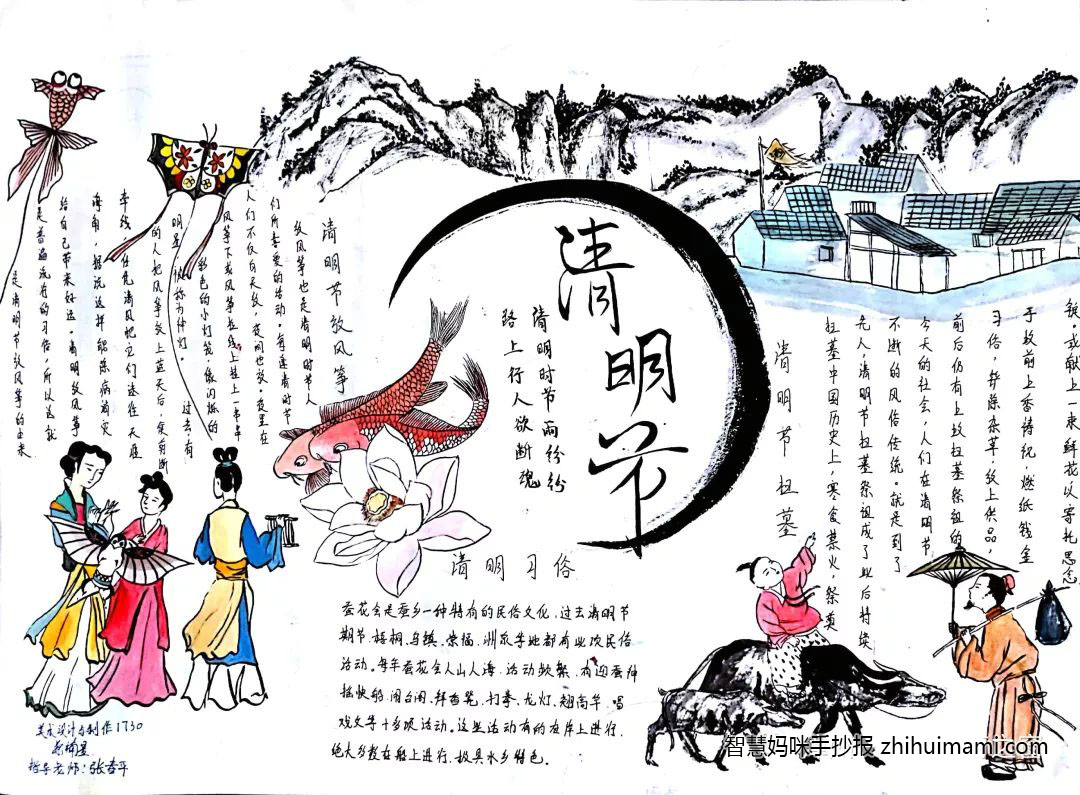 清明节
清明时节雨纷纷
路上行人欲断魂
清明节放风筝
放风筝也是清明时节人
们所喜爱的活动。每逢清明时节
人们不仅白天放，夜间也放。夜里在
风筝下或风筝拉线上挂上一串串
彩色的小灯笼，像闪烁的
明星，被称为神灯。过去，有
的人把风筝放上蓝天后，便剪断
牵线，任凭清风把它们送往天涯
海角，据说这样能除病消灾
给自己带来好运。清明放风筝
是普遍流行的习俗，所以这就
是清明节放风筝的由来
清明节扫墓
扫墓中国历史上，寒食禁火，祭奠
先人，清明节扫墓祭祖成了此后持续
不断的风俗传统。就是到了
今天的社会，人们在清明节
前后仍有上坟扫墓祭祖的
习俗，铲除杂草，放上供品，
于坟前上香祷祝，燃纸钱金
锭，或献上一束鲜花以寄托思念
清明习俗
蚕花会是蚕乡一种特有的民俗文化，过去清明节
期节梧桐、乌镇、崇福、洲泉等地都有此项民俗
活动。每年蚕花会人山人海，活动频繁，有迎蚕神
摇快船、闹台阁、拜香凳、打拳、龙灯、翘高竿、唱
戏文等十多项活动。这些活动有的在岸上进行，
绝大多数在船上进行，极具水乡特色。
美术设计与制作1730
指导老师：张春平
智慧妈咪手抄报 zhihuimami.com